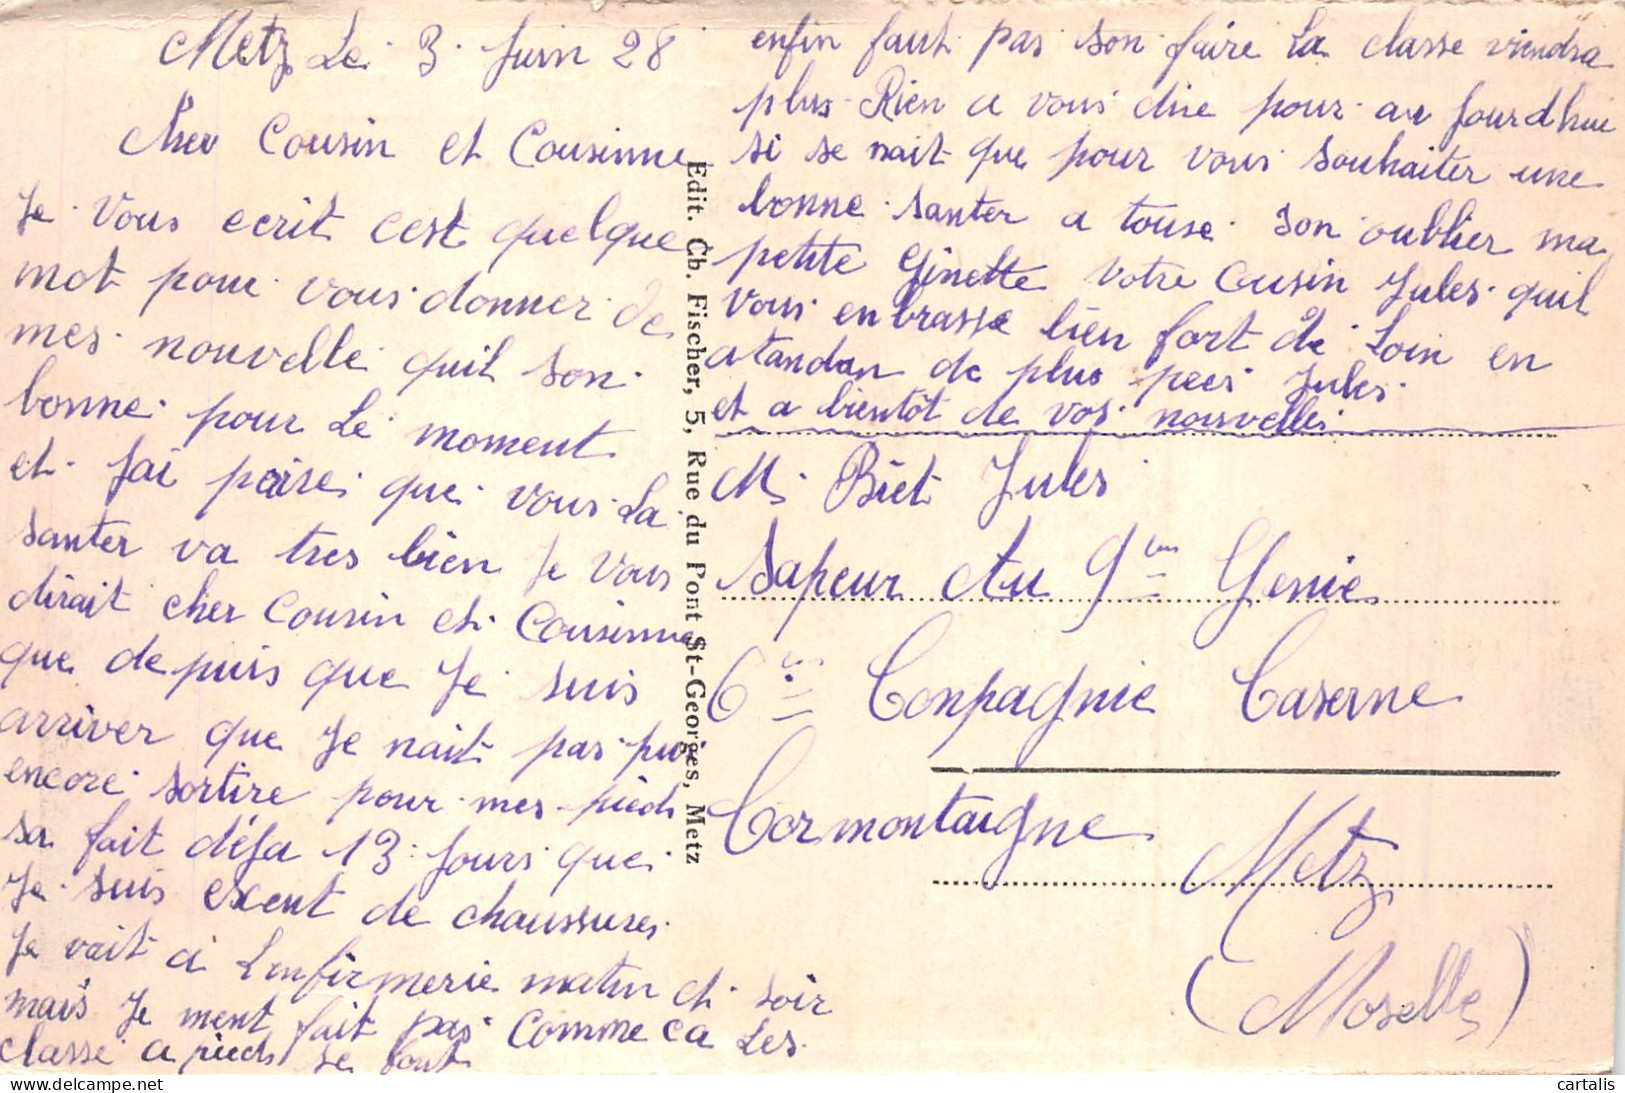 Metz Le 3 Juin 28
Cher Cousin et Cousinne
Je Vous ecrit cest quelque
mot pour vous donner de
mes nouvelle quil son
bonne pour Le moment
et Jai paire que vous La
santer va tres bien Je Vous
dirait cher Cousin et Cousinne
que depuis que Je suis
arriver que Je nait pas pui
encore sortire pour mes pieds
sa fait déja 13 Jours que
Je suis exent de chaussures
Je vait a Linfirmerie matin et soir
mais Je ment fait pas comme ca Les
classe a pieds se font
enfin faut pas son faire La classe viendra
plus Rien a vous dire pour au Jourdhui
si se nait que pour vous souhaiter une
bonne santer a touse son oublier ma
petite Ginette Votre Cousin Jules quil
vous enbrasse bien fort de Loin en
atandan de plus pres Jules
et a bientôt de vos nouvelles
M. Biet Jules
Sapeur Au 9em Genie
6em Conpagnie Caserne
Cormontaigne
Metz
(Moselle)
Edit. Ch. Fischer, 5, Rue du Pont St-Georges, Metz
cartalis